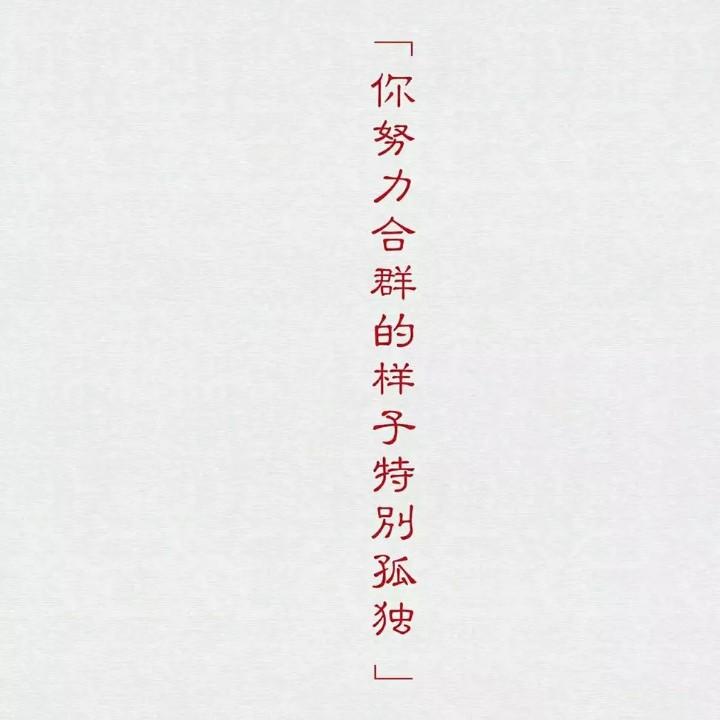 「你努力合群的样子特別孤独」